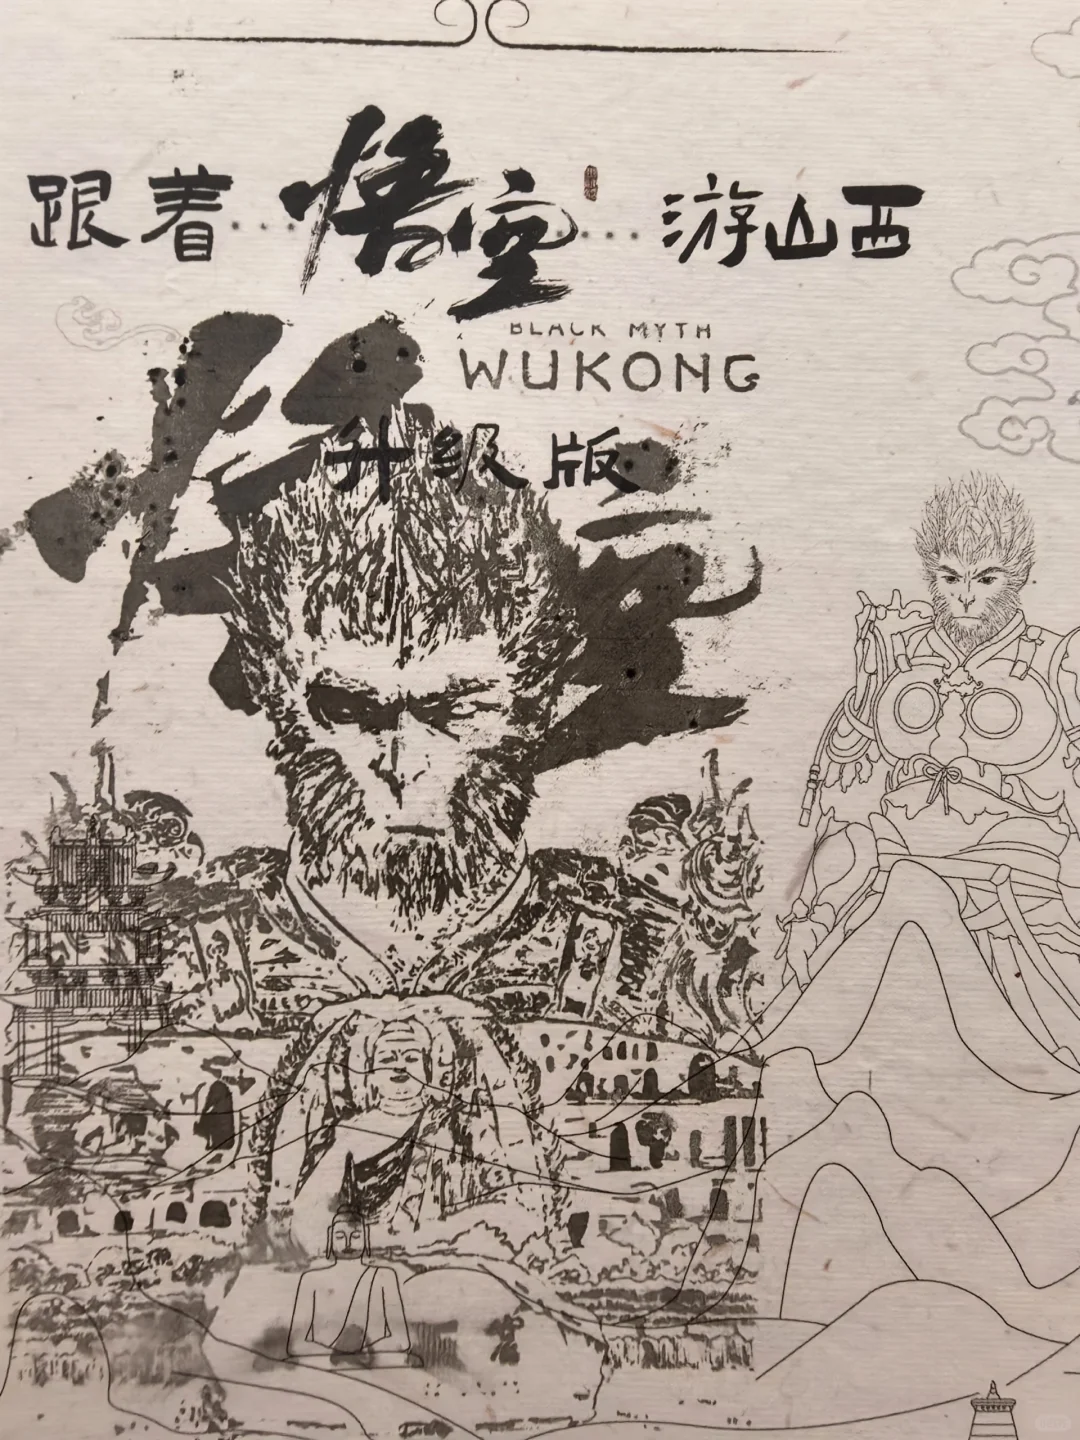 跟着...悟空....游山西
BLACK MYTH
WUKONG
升级版